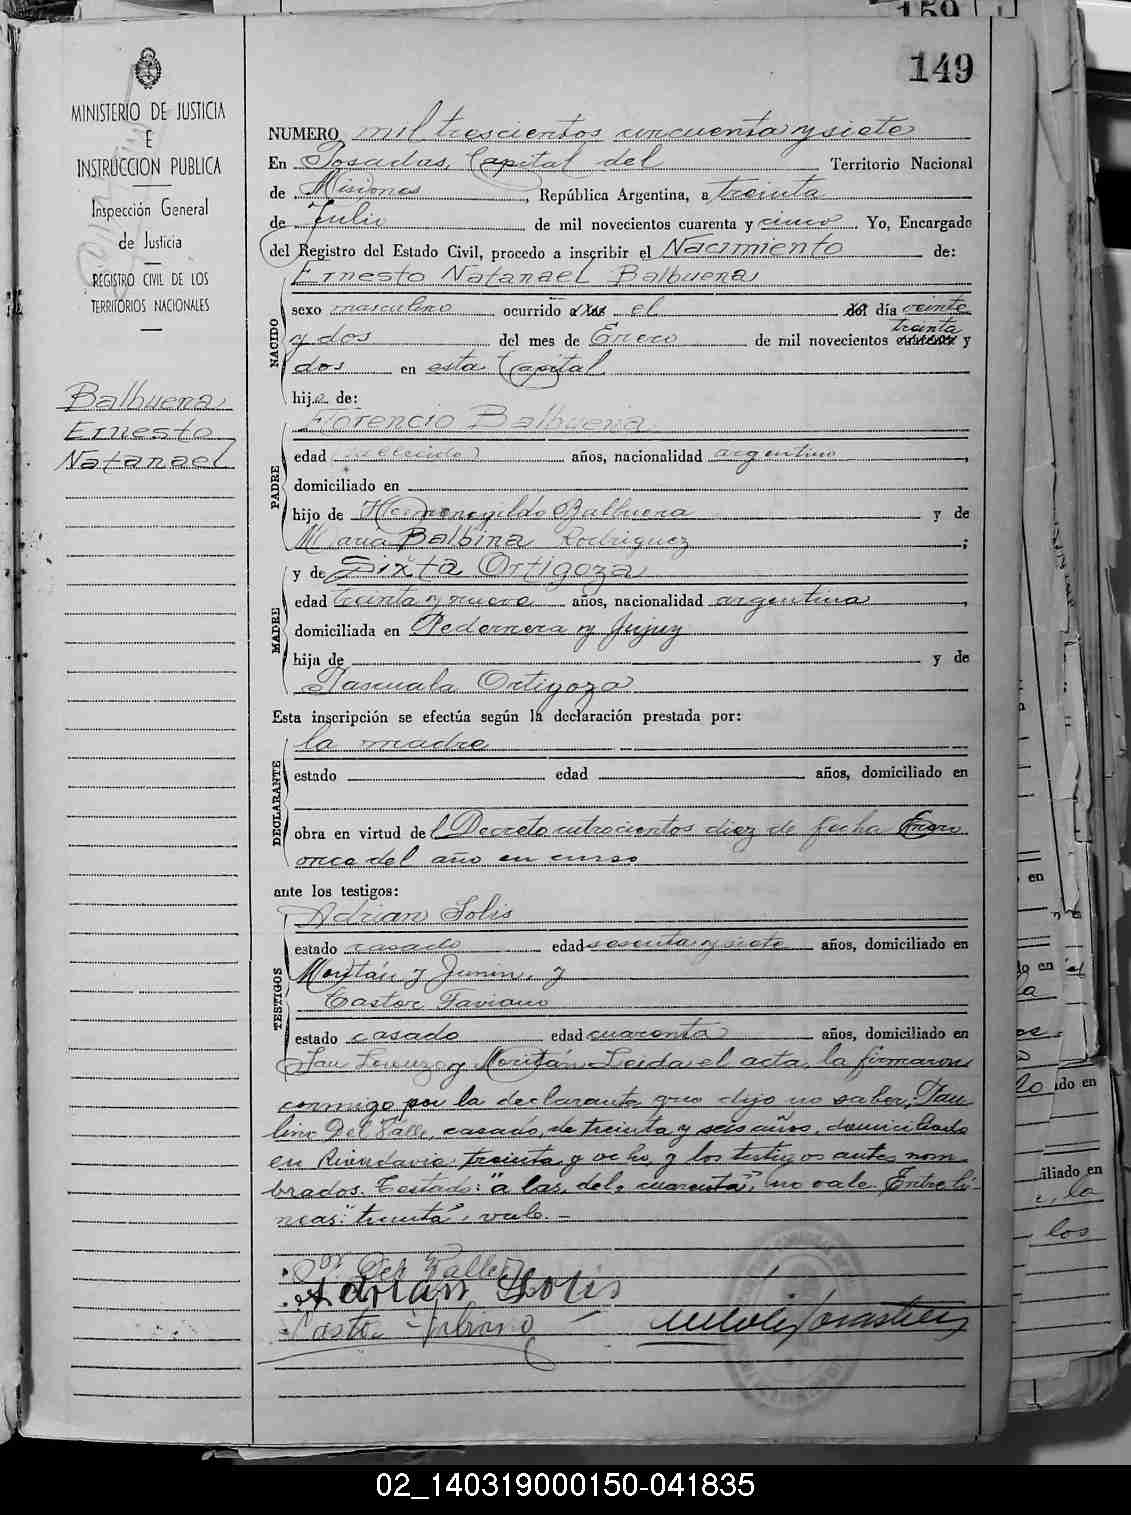 159
149
MINISTERIO DE JUSTICIA
E
INSTRUCCION PUBLICA
Inspección General
de Justicia
REGISTRO CIVIL DE LOS
TERRITORIOS NACIONALES
Balbuena
Ernesto
Natanael
NUMERO mil trescientos cincuenta y siete
En Posadas, Capital del Territorio Nacional
de Misiones, República Argentina, a treinta
de Julio de mil novecientos cuarenta y cinco. Yo, Encargado
del Registro del Estado Civil, procedo a inscribir el Nacimiento de:
Ernesto Natanael Balbuena
NACIDO
sexo masculino ocurrido a las el del día veinte
y dos del mes de Enero de mil novecientos treinta y
dos en esta Capital
hijo de:
Florencio Balbuena
PADRE
edad fallecido años, nacionalidad argentino,
domiciliado en
hijo de Hermenegildo Balbuena y de
María Balbina Rodriguez;
y de Sixta Ortigoza
MADRE
edad treinta y nueve años, nacionalidad argentina,
domiciliada en Pedernera y Jujuy
hija de y de
Pascuala Ortigoza
Esta inscripción se efectúa según la declaración prestada por:
la madre
DECLARANTE
estado edad años, domiciliado en
obra en virtud del Decreto cutrocientos diez de fecha Enero
once del año en curso
ante los testigos:
Adrian Solis
TESTIGOS
estado casado edad sesenta y siete años, domiciliado en
Moritán y Junin, y
Castor Faviano
estado casado edad cuarenta años, domiciliado en
San Lorenzo y Moritán. Leida el acta, la firmaron
conmigo por la declaranta que dijo no saber, Pau
lino Del Valle, casado, de treinta y seis años, domiciliado
en Rivadavia treinta y ocho, y los testigos antes nom-
brados. Testado: "a las, del, cuarenta", no vale. Entre lí-
neas: "treinta", vale.-
Del Valle
Adrian Solis
02_140319000150-041835